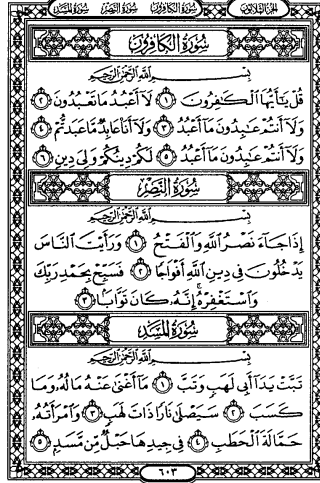 الجزء الثلاثون سورة الكافرون سورة النصر سورة المسد
سُورَةُ الكَافِرُونَ
بِسْمِ اللَّهِ الرَّحْمَٰنِ الرَّحِيمِ
قُلْ يَٰٓأَيُّهَا ٱلْكَٰفِرُونَ ١ لَآ أَعْبُدُ مَا تَعْبُدُونَ ٢
وَلَآ أَنتُمْ عَٰبِدُونَ مَآ أَعْبُدُ ٣ وَلَآ أَنَا۠ عَابِدٌ مَّا عَبَدتُّمْ ٤
وَلَآ أَنتُمْ عَٰبِدُونَ مَآ أَعْبُدُ ٥ لَكُمْ دِينُكُمْ وَلِىَ دِينِ ٦
سُورَةُ النَّصْرِ
بِسْمِ اللَّهِ الرَّحْمَٰنِ الرَّحِيمِ
إِذَا جَآءَ نَصْرُ ٱللَّهِ وَٱلْفَتْحُ ١ وَرَأَيْتَ ٱلنَّاسَ
يَدْخُلُونَ فِى دِينِ ٱللَّهِ أَفْوَاجًا ٢ فَسَبِّحْ بِحَمْدِ رَبِّكَ
وَٱسْتَغْفِرْهُ إِنَّهُۥ كَانَ تَوَّابًۢا ٣
سُورَةُ المَسَدِ
بِسْمِ اللَّهِ الرَّحْمَٰنِ الرَّحِيمِ
تَبَّتْ يَدَآ أَبِى لَهَبٍ وَتَبَّ ١ مَآ أَغْنَىٰ عَنْهُ مَالُهُۥ وَمَا
كَسَبَ ٢ سَيَصْلَىٰ نَارًا ذَاتَ لَهَبٍ ٣ وَٱمْرَأَتُهُۥ
حَمَّالَةَ ٱلْحَطَبِ ٤ فِى جِيدِهَا حَبْلٌ مِّن مَّسَدٍۭ ٥
٦٠٣